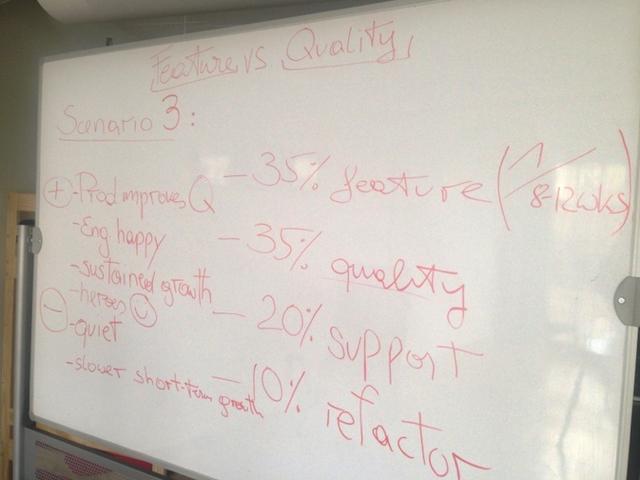 Feature vs Quality
Scenario 3:
+ - Prod improves Q
- Eng. happy
- sustained growth
- heroes ☺
- - quiet
- slower short-term growth
- 35% feature (1/8-12wks)
- 35% quality
- 20% support
- 10% refactor